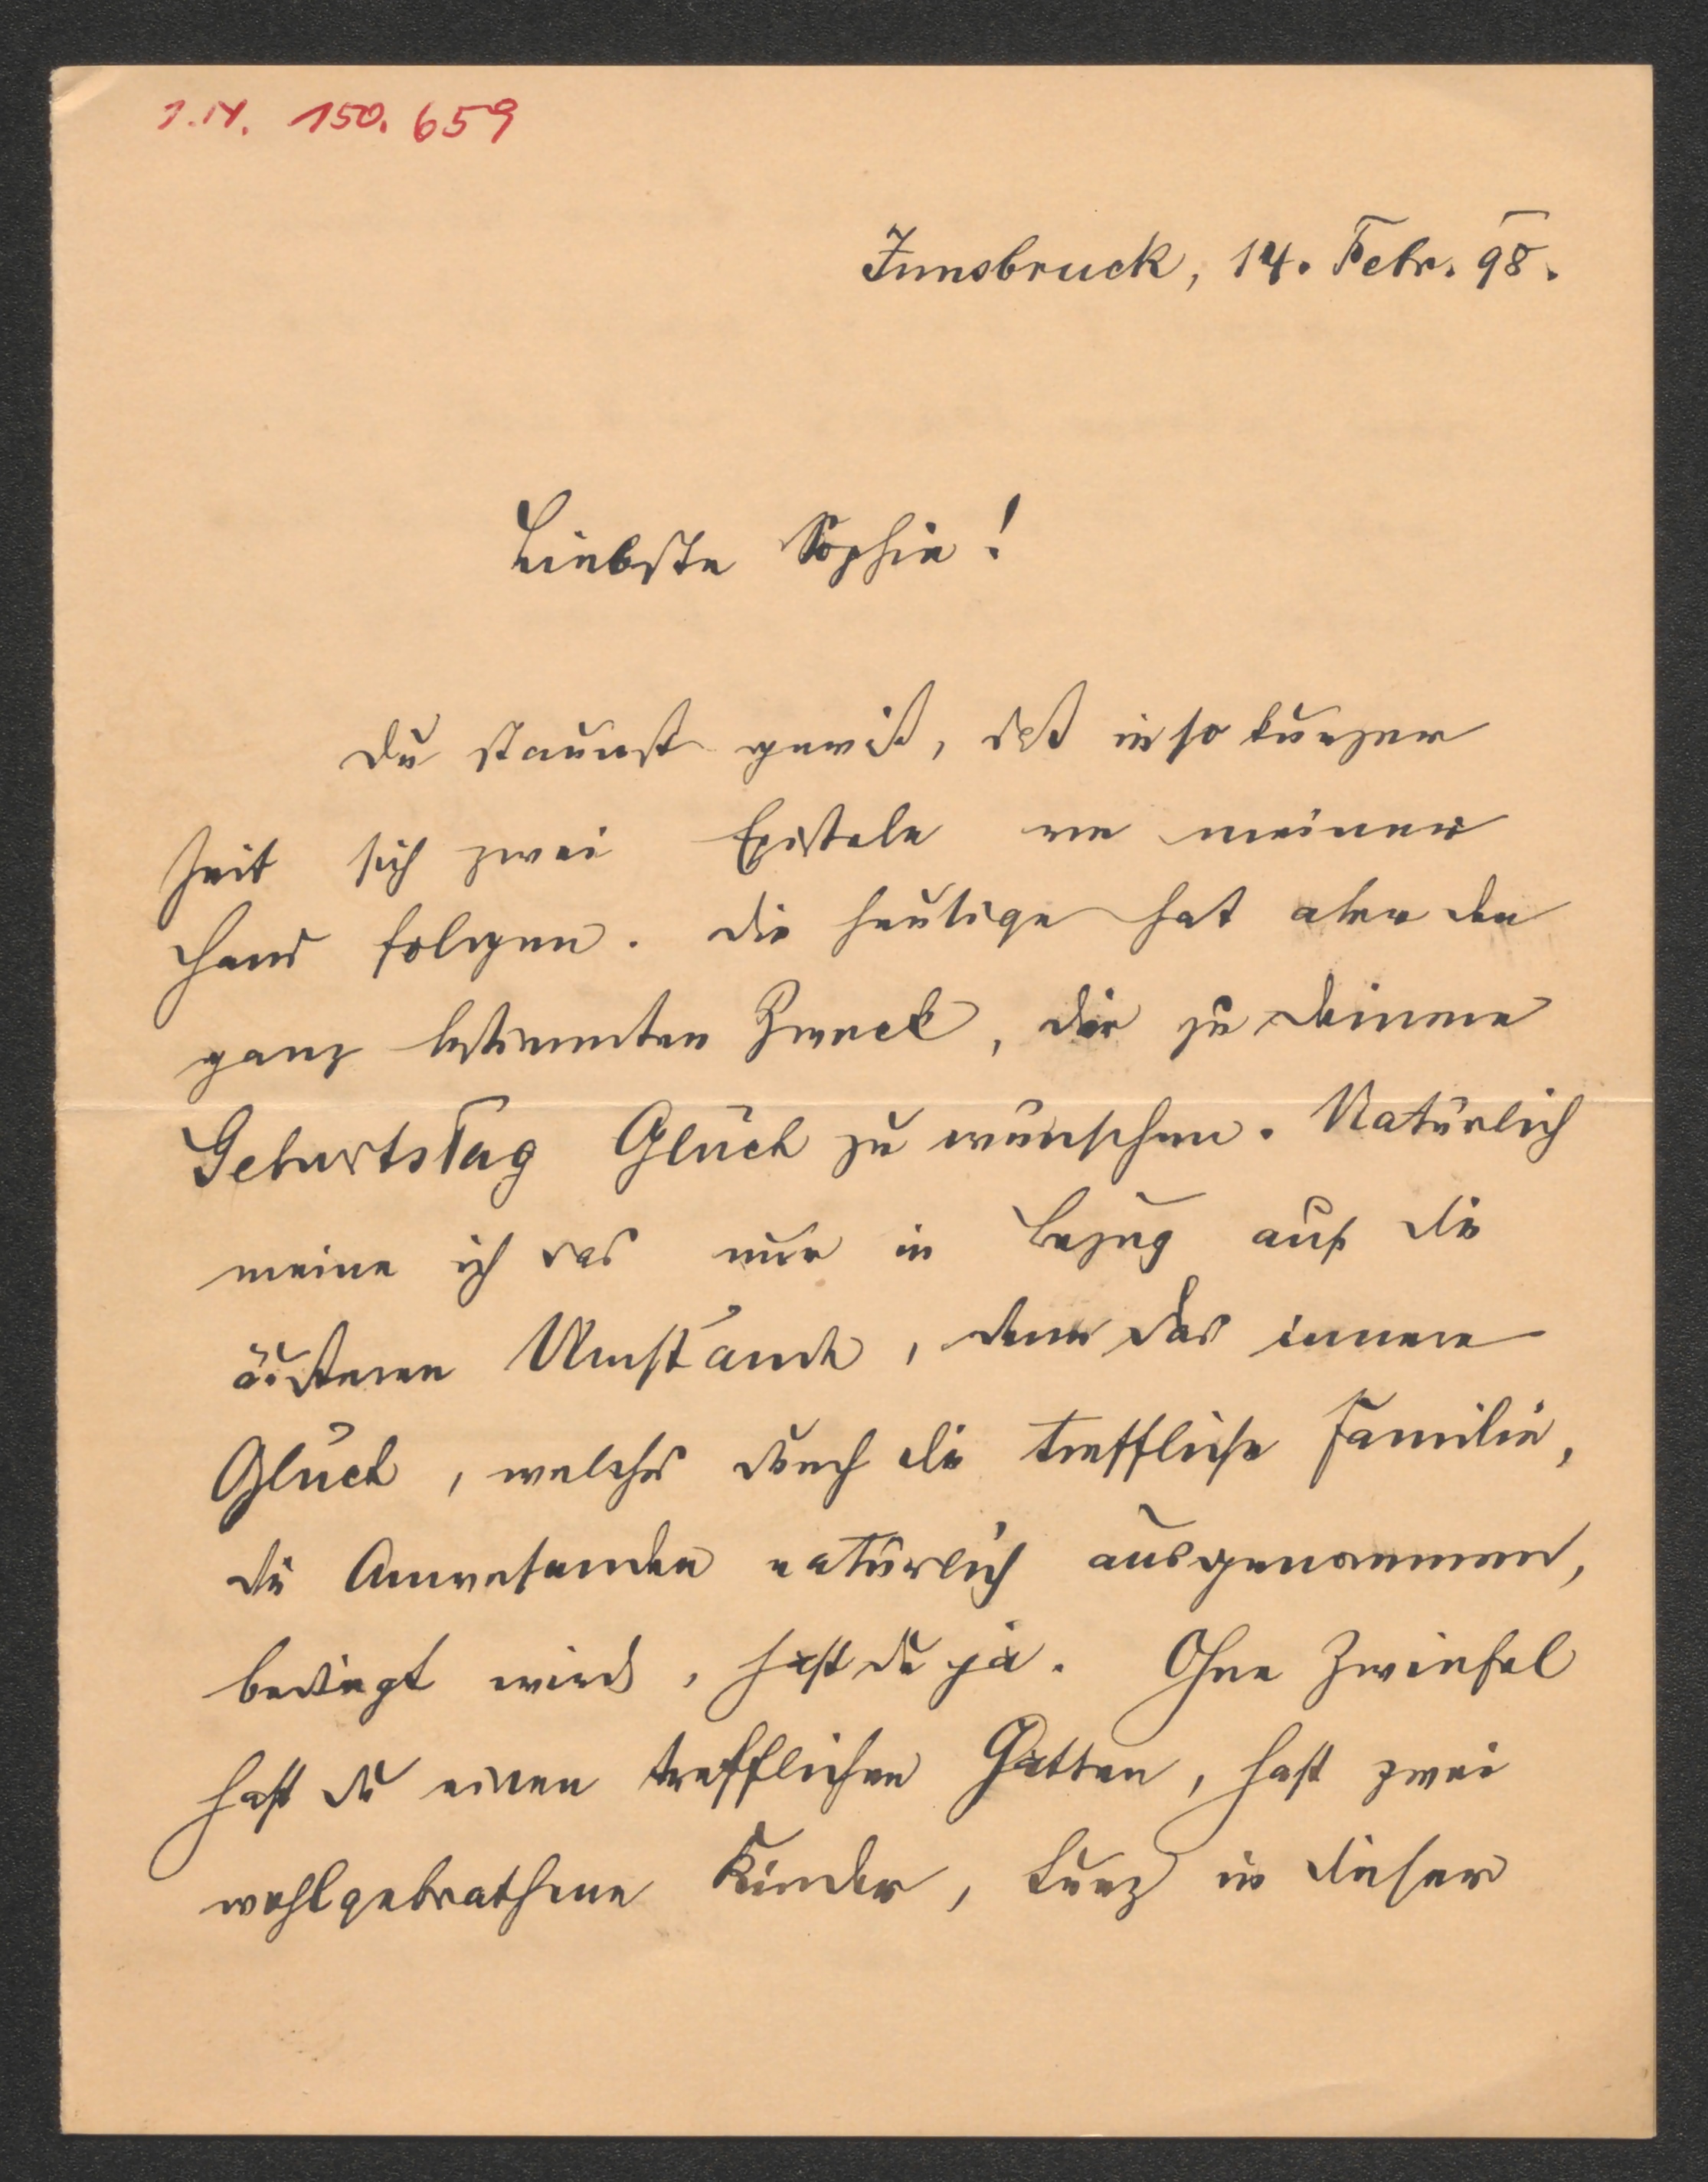 J.N. 150.659
Innsbruck, 14. Febr. 98.
Liebste Sophie!
Du staunst gewiß, daß in so kurzer
Zeit sich zwei Epistele von meiner
Hand folgen. Die heutige hat aber den
ganz bestimmten Zweck, dir zu deinem
Geburtstag Glück zu wünschen. Natürlich
meine ich das nur in Bezug auf die
äußeren Umstände, denn das innere
Glück, welches durch die treffliche Familie,
die Anwesenden natürlich ausgenommen,
bedingt wird, hast du ja. Ohne Zweifel
hast du einen trefflichen Gatten, hast zwei
wohlgebrathene Kinder, kurz in dieser